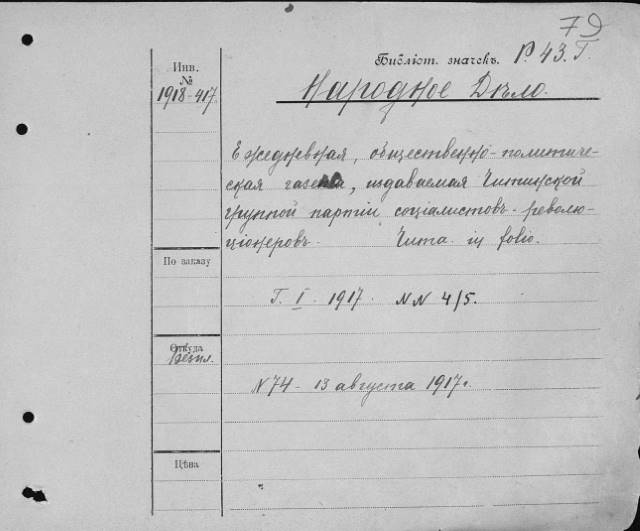 79
Библіот. значекъ. Р. 43. Г.
Инв.
№
1918-417
Народное Дѣло.
Ежедневная, общественно-политиче-
ская газета, издаваемая Читинской
группой партіи соціалистовъ-револю-
ціонеровъ. Чита. in folio.
По заказу
Г. I. 1917. NN 4/5.
Откуда
Безпл.
N 74 - 13 августа 1917 г.
Цѣна